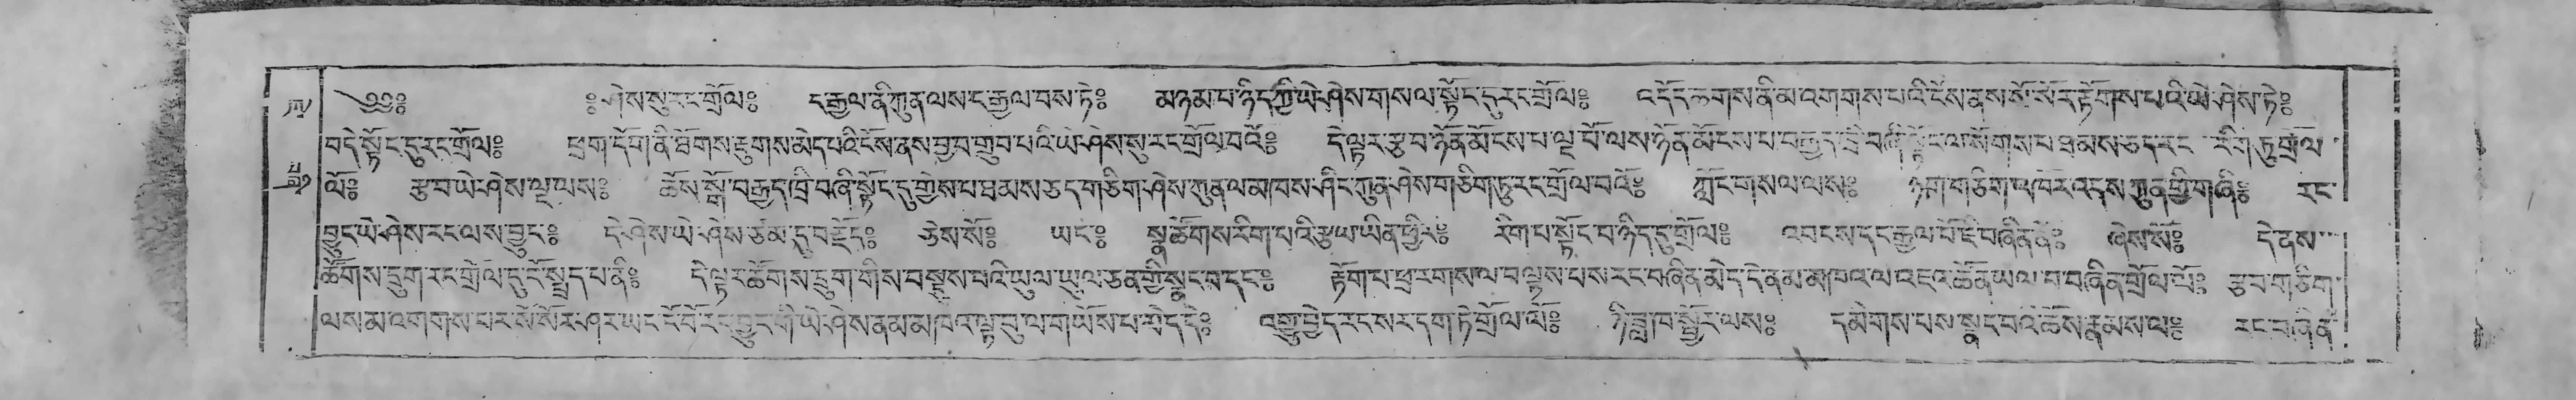 ༄༅༔ ༔ཤེས་སུ་རང་གྲོལ༔ ང་རྒྱལ་ནི་ཀུན་ལས་ང་རྒྱལ་བས་ཏེ༔ མཉམ་པ་ཉིད་ཀྱི་ཡེ་ཤེས་གསལ་སྟོང་དུ་རང་གྲོལ༔ འདོད་ཆགས་ནི་མ་འགགས་པའི་ངོས་ནས་སོ་སོར་རྟོགས་པའི་ཡེ་ཤེས་ཏེ༔
བདེ་སྟོང་དུ་རང་གྲོལ༔ ཕྲག་དོག་ནི་ཐོགས་རྡུགས་མེད་པའི་ངོས་ནས་བྱ་བ་གྲུབ་པའི་ཡེ་ཤེས་སུ་རང་གྲོལ་བའོ༔ དེ་ལྟར་རྩ་བ་ཉོན་མོངས་པ་ལྔ་པོ་ལས་ཉོན་མོངས་པ་བརྒྱད་ཁྲི་བཞི་སྟོང་ལ་སོགས་པ་ཐམས་ཅད་རང་རིག་ཏུ་གྲོལ་
ལོ༔ རྩ་བ་ཡེ་ཤེས་ལྔ་ལས༔ ཆོས་སྒོ་བརྒྱད་ཁྲི་བཞི་སྟོང་དུ་གྱེས་པ་ཐམས་ཅད་གཅིག་ཤེས་ཀུན་ལ་མཁས་ཤིང་ཀུན་ཤེས་གཅིག་ཏུ་རང་གྲོལ་བའོ༔ ཀློང་གསལ་ལས༔ ཉག་གཅིག་འཁོར་འདས་ཀུན་གྱི་གཞི༔ རང་
བྱུང་ཡེ་ཤེས་རང་ལས་བྱུང༔ དེ་ཤེས་ཡེ་ཤེས་ཅེས་དུ་བརྗོད༔ ཅེས་སོ༔ ཡང༔ སྣ་ཚོགས་རིག་པའི་རྩལ་ཡིན་ཕྱིར༔ རིག་པ་སྟོང་པ་ཉིད་དུ་གྲོལ༔ འབངས་དང་རྒྱལ་པོ་ཇི་བཞིན་ནོ༔ ཞེས་སོ༔ དེ་ནས་
ཚོགས་དྲུག་རང་གྲོལ་དུ་ངོ་སྤྲད་པ་ནི༔ དེ་ལྟར་ཚོགས་དྲུག་གིས་བསྡུས་པའི་ཡུལ་ཡུལ་ཅན་གྱི་སྣང་བ་དང༔ རྟོག་པ་ཕྲ་རགས་ལ་བལྟས་པས་རང་བཞིན་མེད་དེ་ནམ་མཁའ་ལ་འཇའ་ཚོན་ཡལ་བ་བཞིན་གྲོལ་ལོ༔ རྩ་བ་གཅིག་
ལས་མ་འགགས་པར་སོ་སོར་ཤར་ཡང་ངོ་བོ་རང་བྱུང་གི་ཡེ་ཤེས་ནམ་མཁའ་ལྟ་བུ་ལ་གཡོས་པ་མེད་དེ༔ འགྱུ་བྱེད་རང་སར་དག་ཏེ་གྲོལ་ལོ༔ ཉི་ཟླ་ཁ་སྦྱོར་ལས༔ དམིགས་པས་སྣང་བའི་ཆོས་རྣམས་ལ༔ རང་བཞིན་